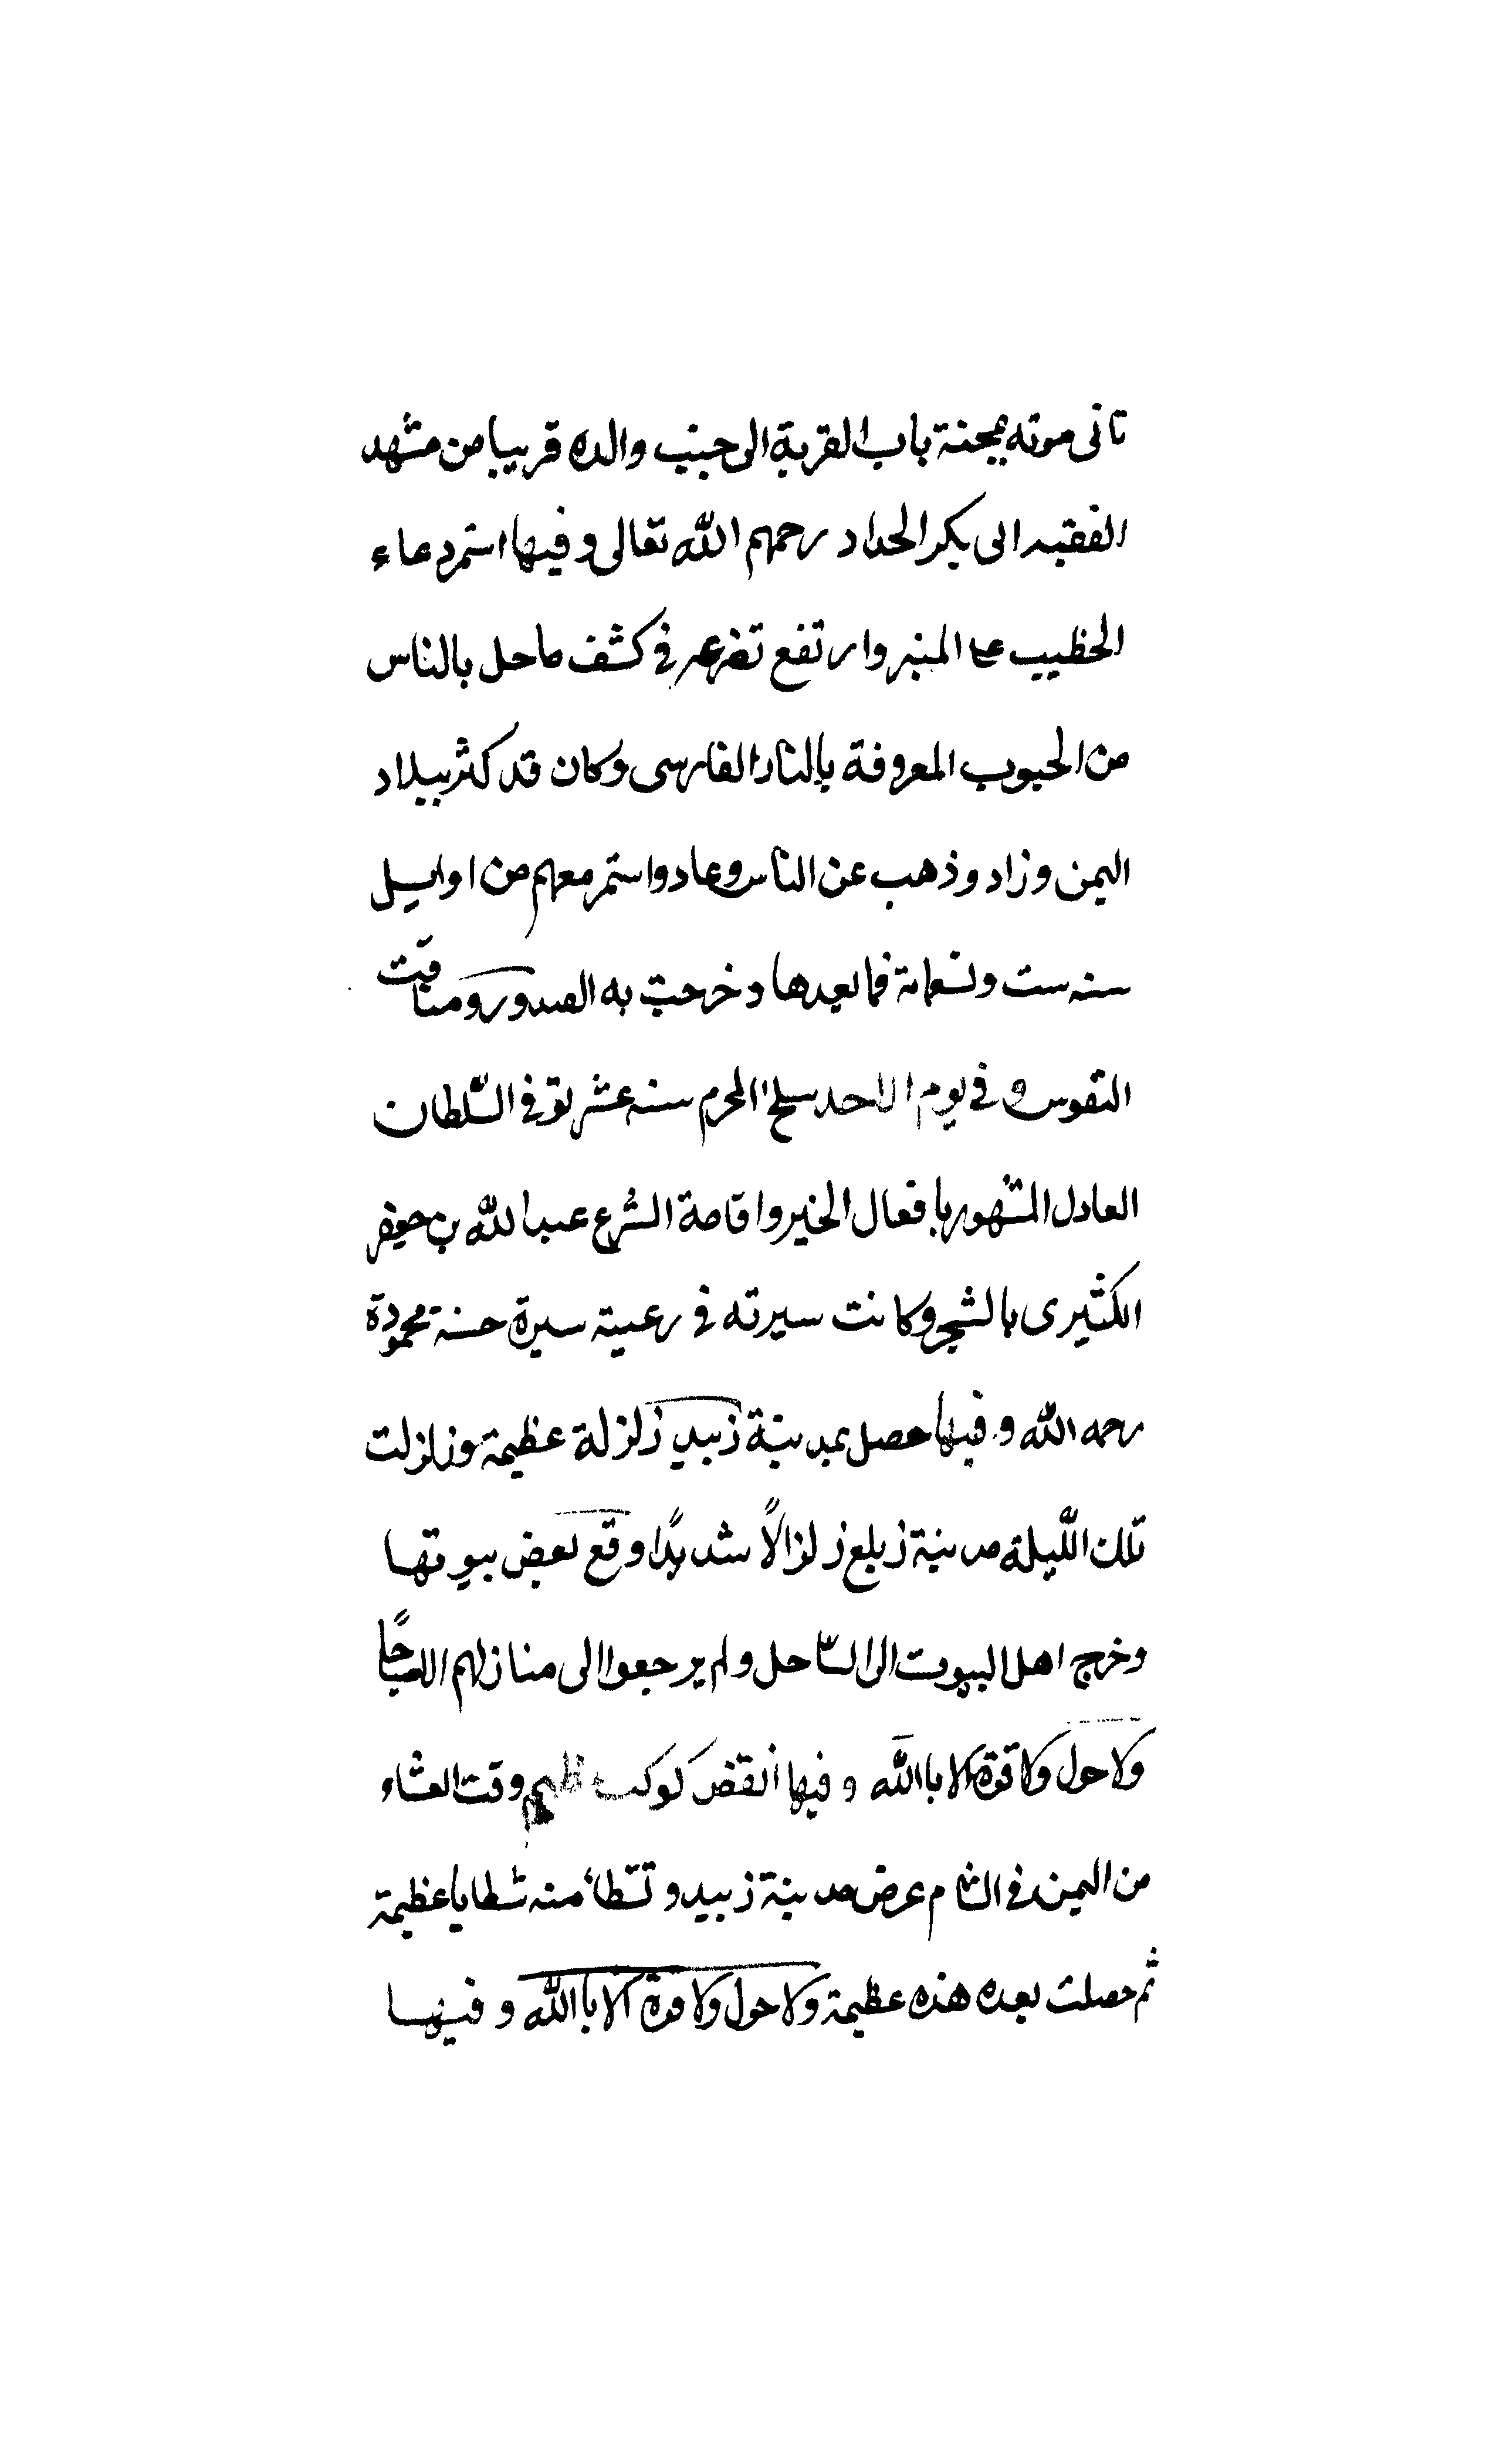 ثانى موته بمجنة باب القربة الى جنب والده قريبا من مشهد
الفقيه ابى بكر الحداد رحمهم الله تعالى وفيها استمر دعاء
الخطيب على المنبر وارتفع تضرعه في كشف ما حل بالناس
من الحبوب المعروفة بالنار الفارسى وكان قد كثر ببلاد
اليمن وزاد وذهب عن الناس وعاد واستمر معهم من اوايل
سنه ست وتسعماىة فما بعدها وخرجت به الصدور وضاقت
النفوس وفي يوم الاحد سلخ المحرم سنه عشر توفي السّلطان
العادل المشهور بافعال الخير واقامة الشرع عبد الله بن جعفر
الكثيرى بالشحر وكانت سيرته في رعيته سيرة حسنة محمودة
رحمه الله وفيها حصل بمدينة زبيد زلزلة عظيمة وزلزلت
تلك اللّيلة مدينة زيلع زلزالًا شديدًا وقع بعض بيوتها
وخرج اهل البيوت الى السّاحل ولم يرجعوا الى منازلهم الا صباحًا
ولا حول ولا قوة الا بالله وفيها انقض كوكب عظيم وقت العشاء
من اليمن في الشام عرض مدينة زبيد وتشظا منه شظايا عظيمة
ثم حصلت بعده هذه عظيمة ولا حول ولا قوة الا بالله وفيها